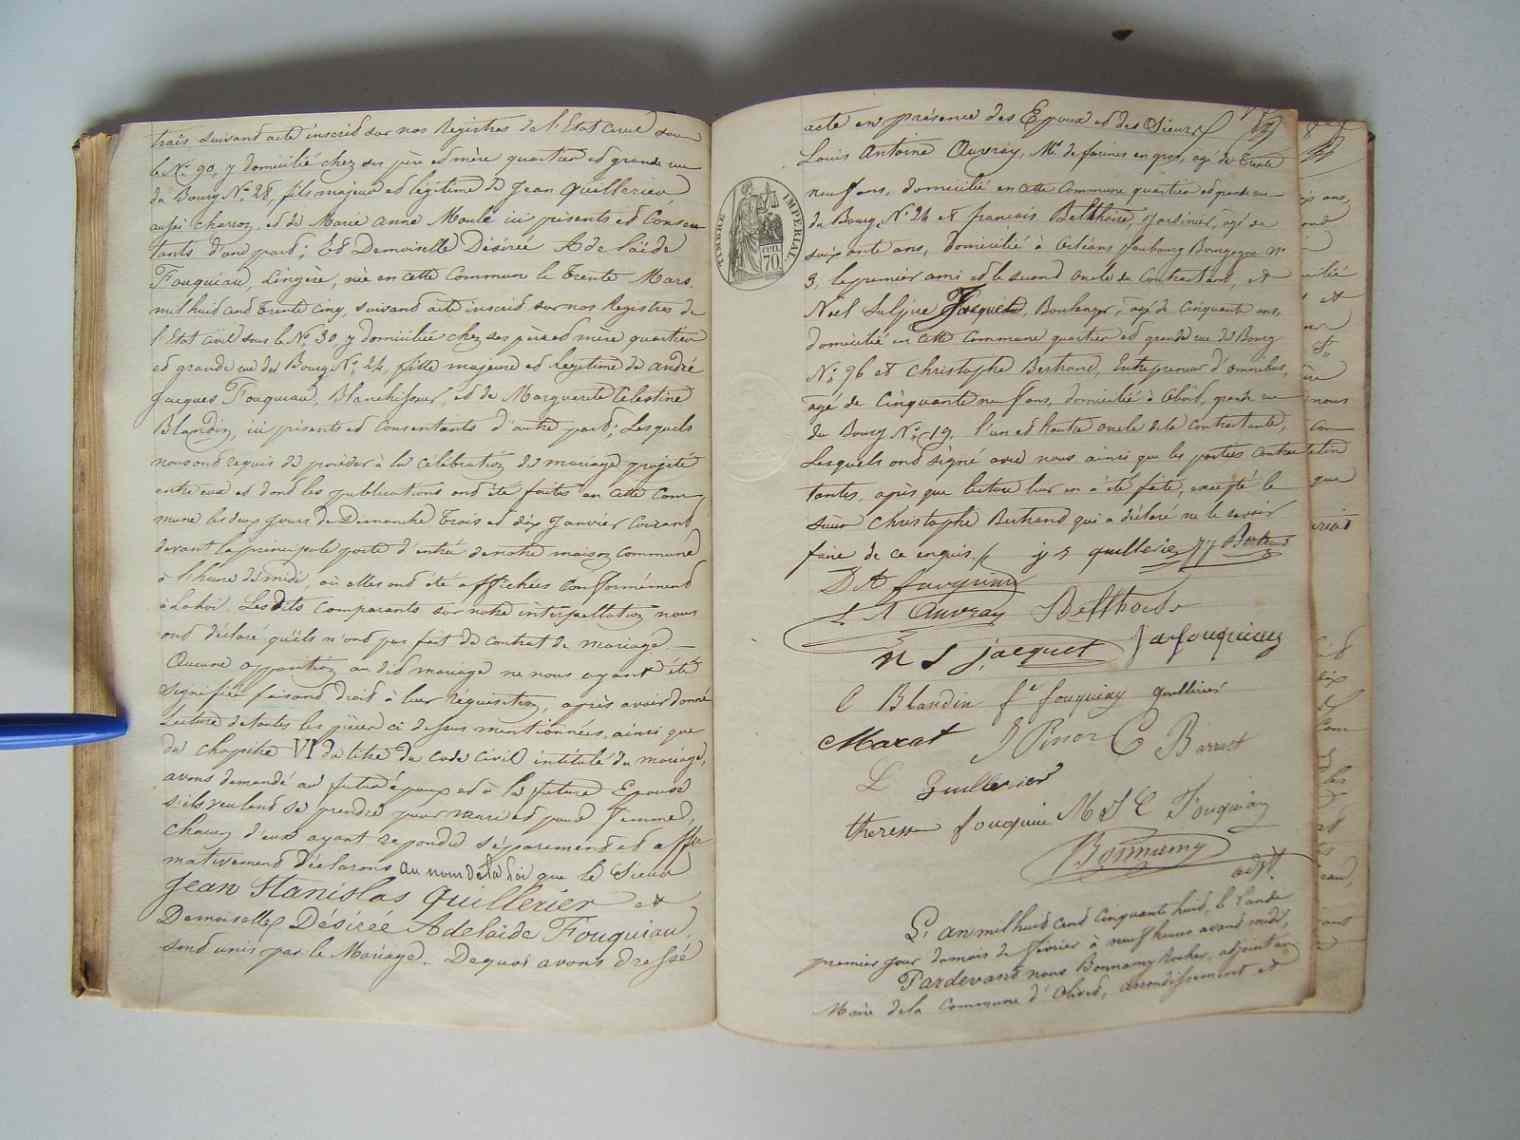 trois suivant acte inscrit sur nos Registres de l'Etat Civil sous
le No. 90, y domicilié chez ses père et mère quartier et grande rue
du Bourg No. 28, fils majeur et légitime de Jean Quillerier
aussi charron, et de Marie Anne Moulé ici présents et Consen-
tants d'une part; Et Demoiselle Désirée Adelaïde
Fouquiau, Lingère, née en cette Commune le trente Mars
mil huit cent trente cinq, suivant acte inscrit sur nos Registres de
l'Etat civil sous le No. 30, y domiciliée chez ses père et mère quartier
et grande rue du Bourg No. 24, fille majeure et légitime de andré
Jacques Fouquiau, Blanchisseur, et de Marguerite Celestine
Blandin, ici présents et Consentants d'autre part; Lesquels
nous ont requis de procéder à la célébration du mariage projeté
entre eux et dont les publications ont été faites en cette Com-
mune les deux jours de Dimanche trois et dix Janvier Courant
devant la principale porte d'entrée de notre maison Commune
à l'heure de midi, où elles ont été affichées Conformément
à la Loi. Les dits Comparants sur notre interpellation nous
ont déclaré qu'ils n'ont pas fait de contrat de mariage
Aucune opposition au dit mariage ne nous ayant été
signifiée faisant droit à leur Réquisition, après avoir donné
lecture de toutes les pièces ci dessus mentionnées, ainsi que
du chapitre VI du titre du Code Civil intitulé du mariage,
avons demandé au futur époux et à la future Epouse
s'ils veulent se prendre pour mari et pour femme,
chacun d'eux ayant repondu séparement et affir-
mativement déclarons au nom de la Loi que le Sieur
Jean Stanislas Quillerier et
Demoiselle Désirée Adelaïde Fouquiau,
sont unis par le Mariage. De quoi avons dressé
TIMBRE IMPERIAL
CEN.
70
acte en présence des Epoux et des Sieurs
Louis Antoine Auvray, Md. de farines en gros, agé de trente
neuf ans, domicilié en cette Commune quartier et grande rue
du Bourg, No. 26 et francois Belthoise, Jardinier, agé de
soixante ans, domicilié à Orléans faubourg Bourgogne no
3, le premier ami et le second oncle du Contractant, et
Noel Sulpice Jacquet, Boulanger, agé de Cinquante ans,
domicilié en cette Commune quartier et grande rue du Bourg
No. 96 et Christophe Bertrand, Entrepreneur d'omnibus,
agé de Cinquante neuf ans, domicilié à Olivet, grande rue
du Bourg No. 19, l'un et l'autre oncle de la Contractante,
Lesquels ont signé avec nous ainsi que les parties Contrac-
tantes, après que lecture leur en a été faite, excepté le
sieur Christophe Bertrand qui a déclaré ne le savoir
faire de ce enquis. j s quillerier
D A fouquiau
L A Auvray Belthoise
n s jacquet j a fouquiau
C Blandin fe fouquiau quillerier
Marat Pinor C Barrest
L Quillerier
theresse fouquiau M S C Fouquiau
Bonnamy
adjt.
L'an mil huit cent Cinquante huit, le Lundi
premier jour du mois de février à neuf heures avant midi,
Pardevant nous Bonnamy Rocher, adjoint au
Maire de la Commune d'Olivet, arrondissement et